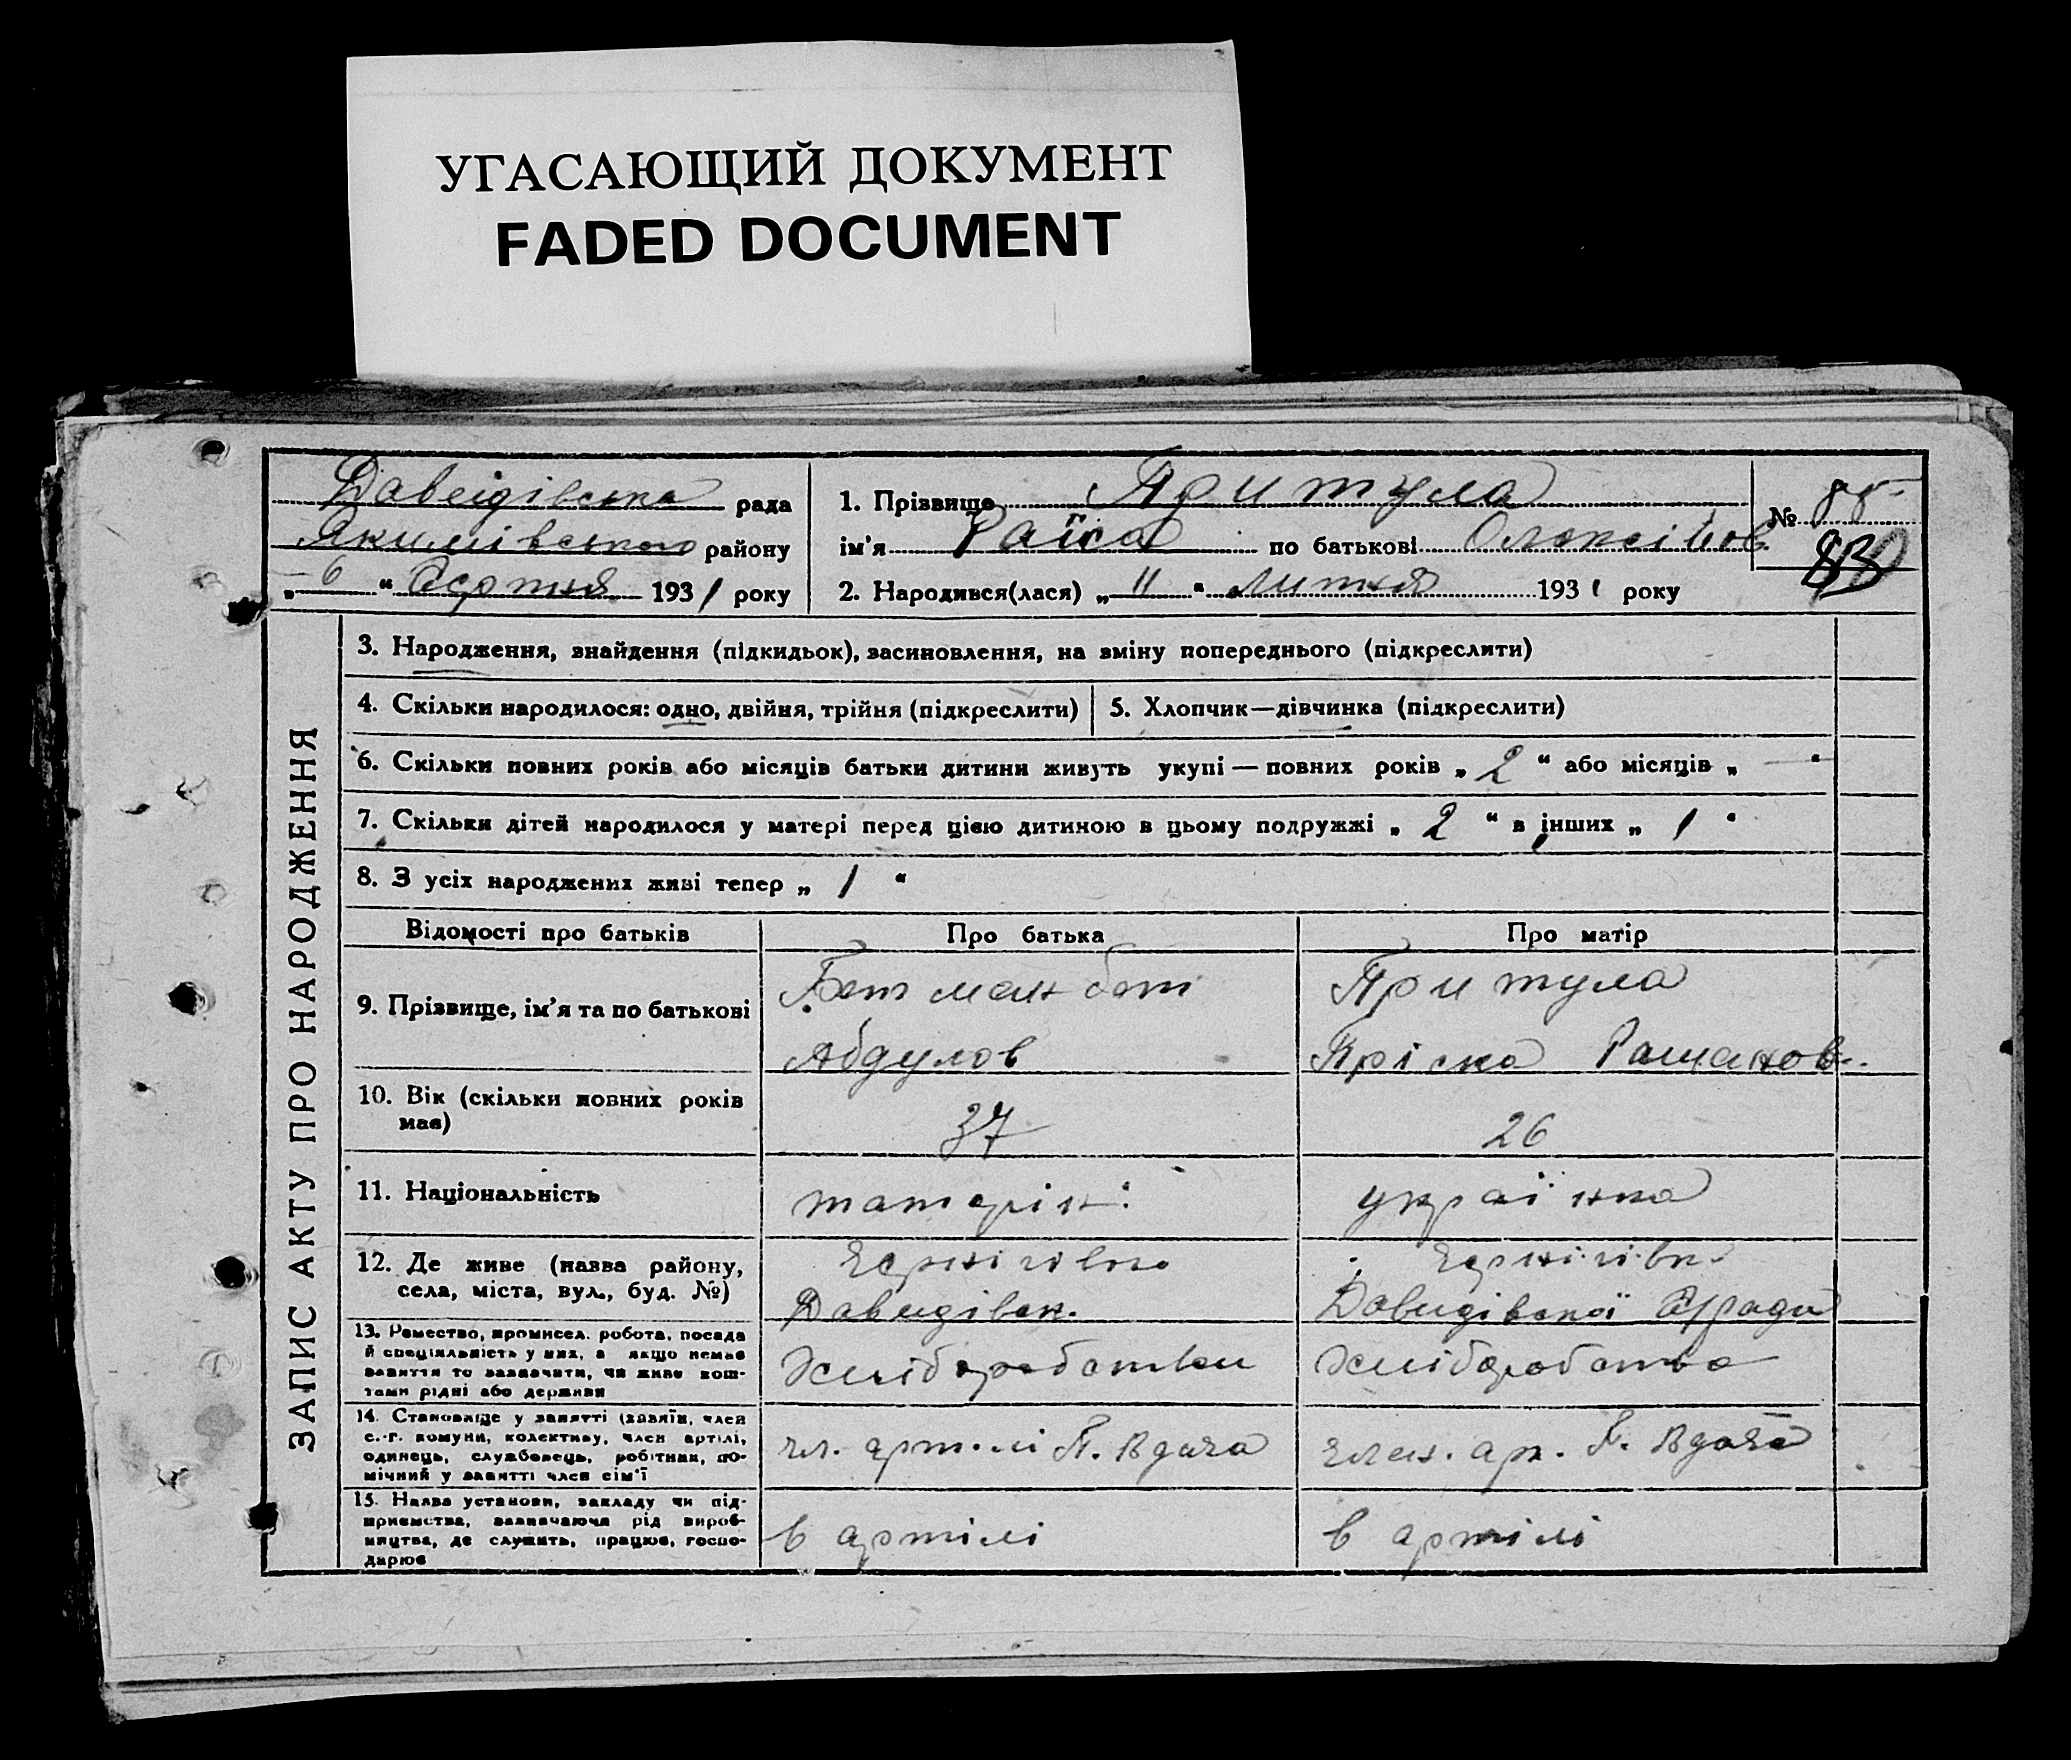 УГАСАЮЩИЙ ДОКУМЕНТ
FADED DOCUMENT
Давидівська рада
Якимівського району
„ 6 “ Серпня 1931 року
1. Прізвище Притула
ім'я Раїса по батькові Олексіівов.
2. Народився(лася) „ 11 “ Липня 1931 року
№ 88
ЗАПИС АКТУ ПРО НАРОДЖЕННЯ
3. Народження, знайдення (підкидьок), засиновлення, на зміну попереднього (підкреслити)
4. Скільки народилося: одно, двійня, трійня (підкреслити)
5. Хлопчик—дівчинка (підкреслити)
6. Скільки повних років або місяців батьки дитини живуть укупі — повних років „ 2 “ або місяців „ — “
7. Скільки дітей народилося у матері перед цією дитиною в цьому подружжі „ 2 “ в інших „ 1 “
8. З усіх народжених живі тепер „ 1 “
Відомості про батьків
Про батька
Про матір
9. Прізвище, ім'я та по батькові
Абдулов
Притула
Пріська Романов..
10. Вік (скільки повних років
має)
37
26
11. Національність
татарін
українка
12. Де живе (назва району,
села, міста, вул., буд. №)
Чернігівка
Давидівськ.
Чернігівка
Давидівської С/ради
13. Ремество, промисел. робота, посада
й спеціяльність у них, а якщо немає
заняття то зазначити, чи живе кош-
тами рідні або держави
Хліборобство
Хліборобство
14. Становище у занятті (хазяїн, член
с.-г. комуни, колективу, член артілі,
одинець, службовець, робітник, по-
мічний у занятті член сім'ї
чл. артілі П. Вдача
член. ар. П. Вдача
15. Назва установи, закладу чи під-
приємства, зазначаючи рід вироб-
ництва, де служить, працює, госпо-
дарює
в артілі
в артілі